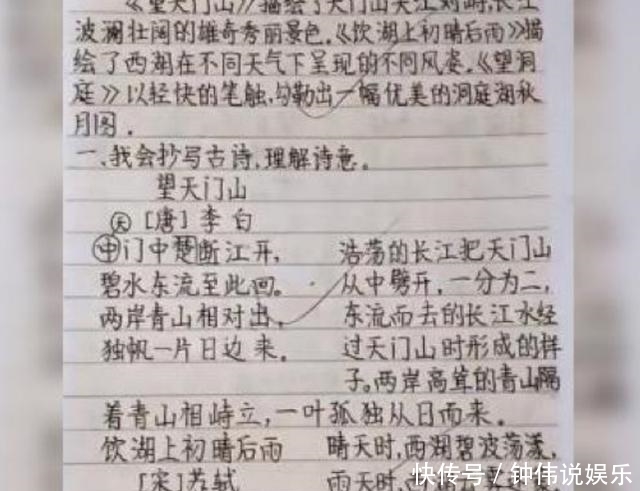 《望天门山》描绘了天门山夹江对峙,长江
波澜壮阔的雄奇秀丽景色.《饮湖上初晴后雨》描
绘了西湖在不同天气下呈现的不同风姿.《望洞
庭》以轻快的笔触,勾勒出一幅优美的洞庭湖秋
月图.
一、我会抄写古诗,理解诗意。
望天门山
天 [唐]李白
中门中楚断江开, 浩荡的长江把天门山
碧水东流至此回。 从中劈开,一分为二,
两岸青山相对出, 东流而去的长江水经
独帆一片日边来。 过天门山时形成的样
子。两岸高耸的青山隔
着青山相峙立,一叶孤独从日而来。
饮湖上初晴后雨 晴天时,西湖碧波荡漾,
[宋]苏轼 雨天时,
快传号/钟伟说娱乐